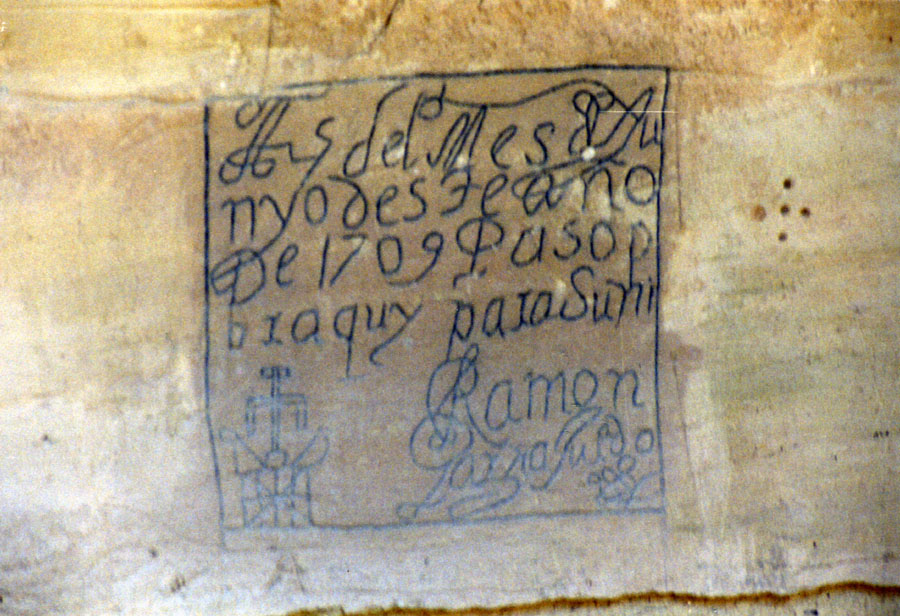 A 25 del Mes de Ju
nyo deste año
De 1709 Paso p
or aquy para Suñi
Ramon
Jurdo